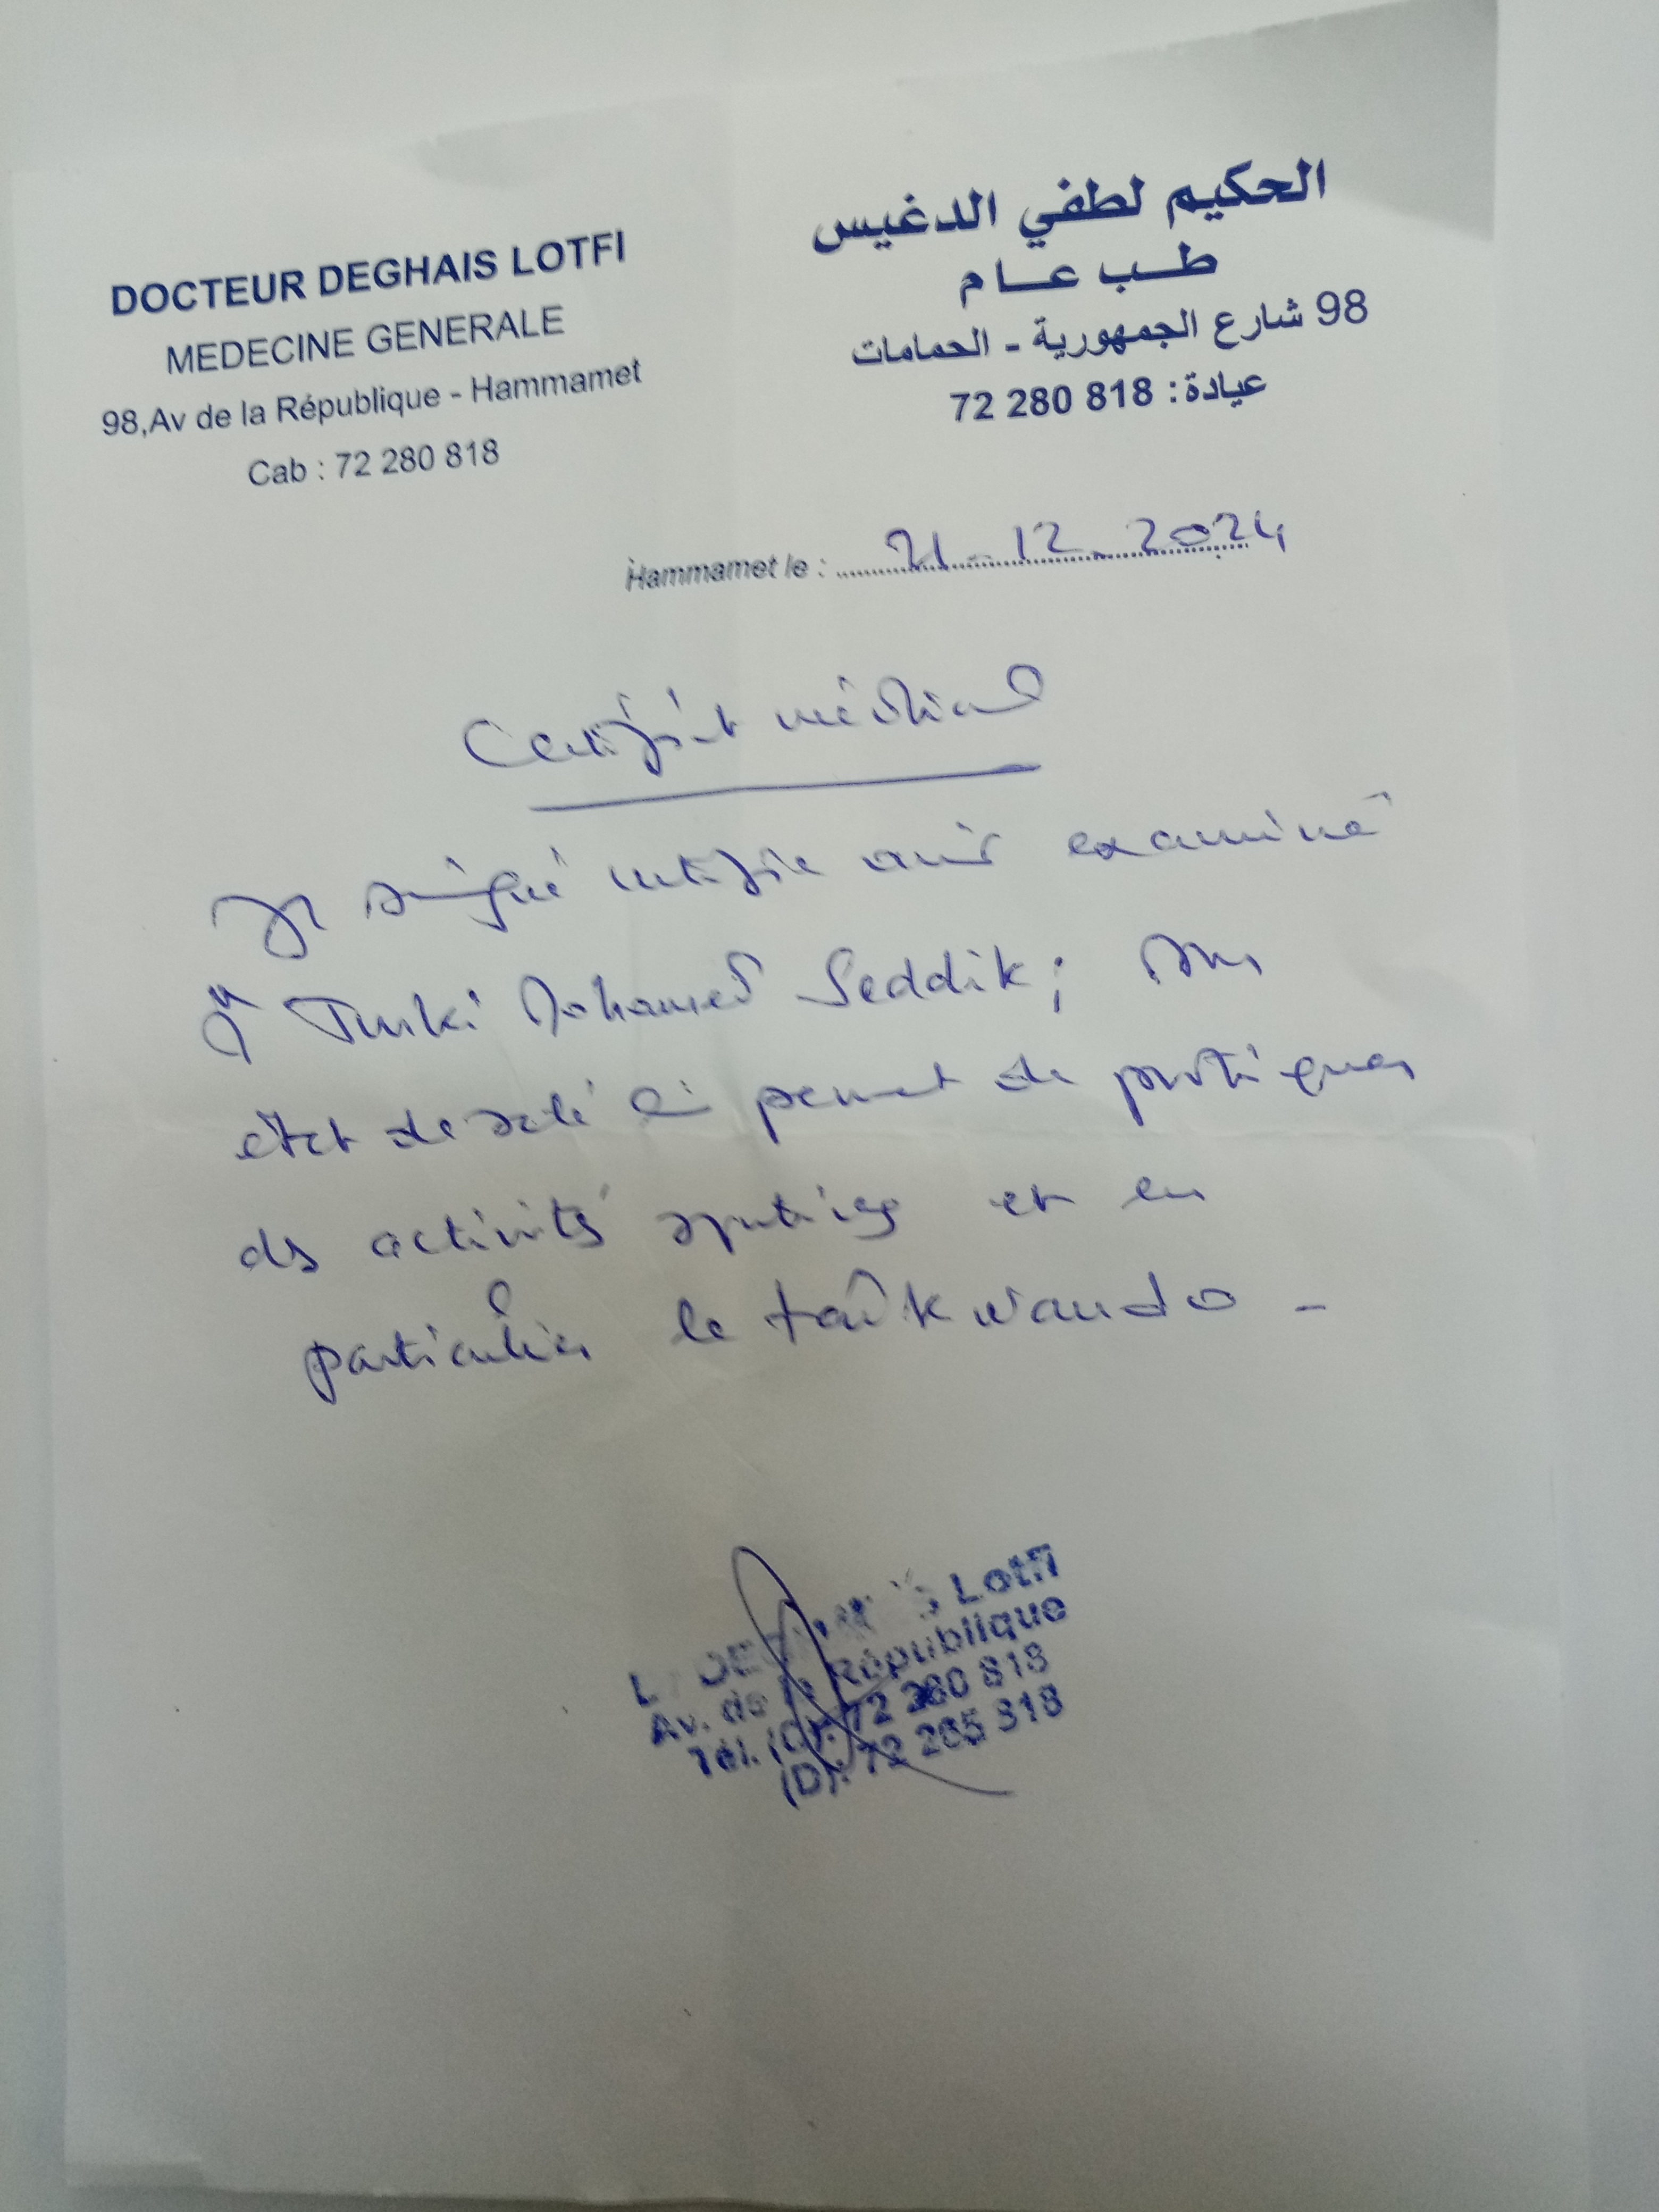 DOCTEUR DEGHAIS LOTFI
MEDECINE GENERALE
98,Av de la République - Hammamet
Cab : 72 280 818
الحكيم لطفي الدغيس
طب عام
98 شارع الجمهورية - الحمامات
عيادة: 72 280 818
Hammamet le : 21-12-2024
Certificat médical
Je soigné certifie avoir examiné
Turki Mohamed Seddik; son
état de santé lui permet de pratiquer
des activités sportives et en
particulier le taîkwando -
Lotfi
Av. de la République
Tél. (C): 72 280 818
(D): 72 265 818